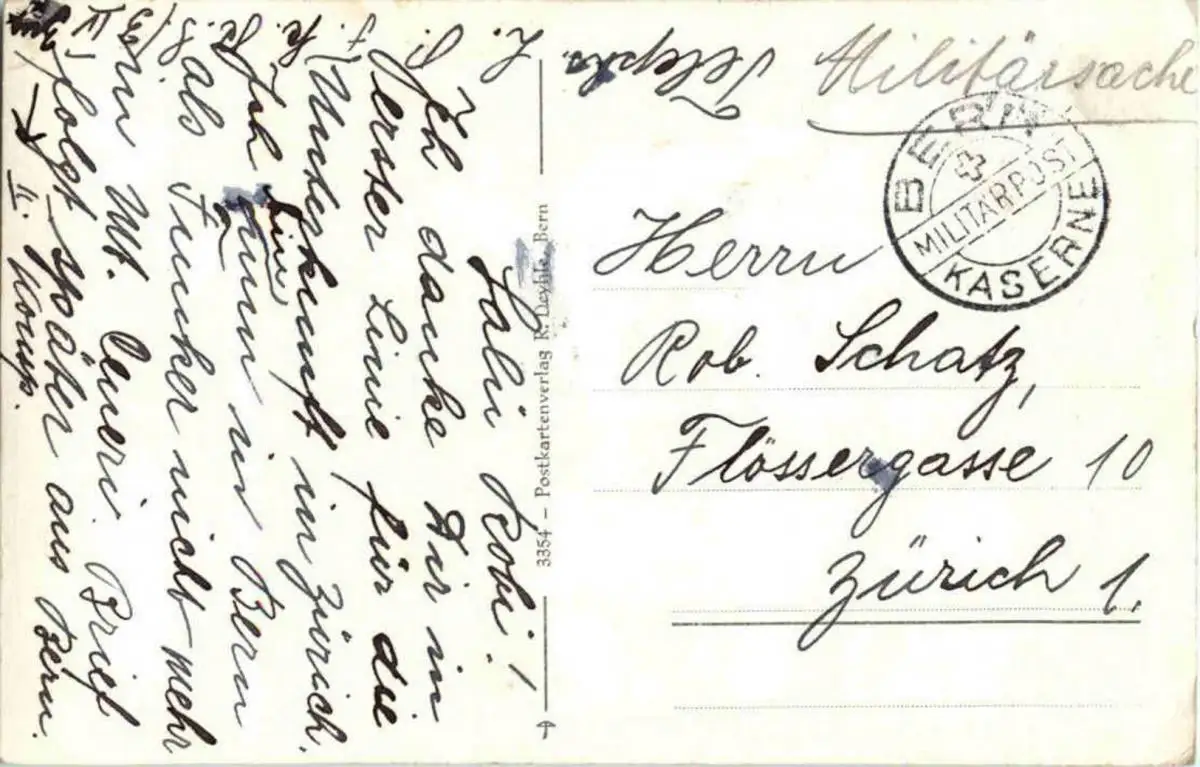 Militärsache
BERN
MILITÄRPOST
KASERNE
Herrn
Rob. Schatz,
Flössergasse 10
Zürich 1.
3354 – Postkartenverlag R. Deyhle, Bern
Sali Robi!
Ich danke Dir in
erster Linie für die
Unterkunft in Zürich.
Ich bin in Bern
als Funker nicht mehr
im Mt. Ceneri. Brief
folgt später aus Bern.
II. Komp.